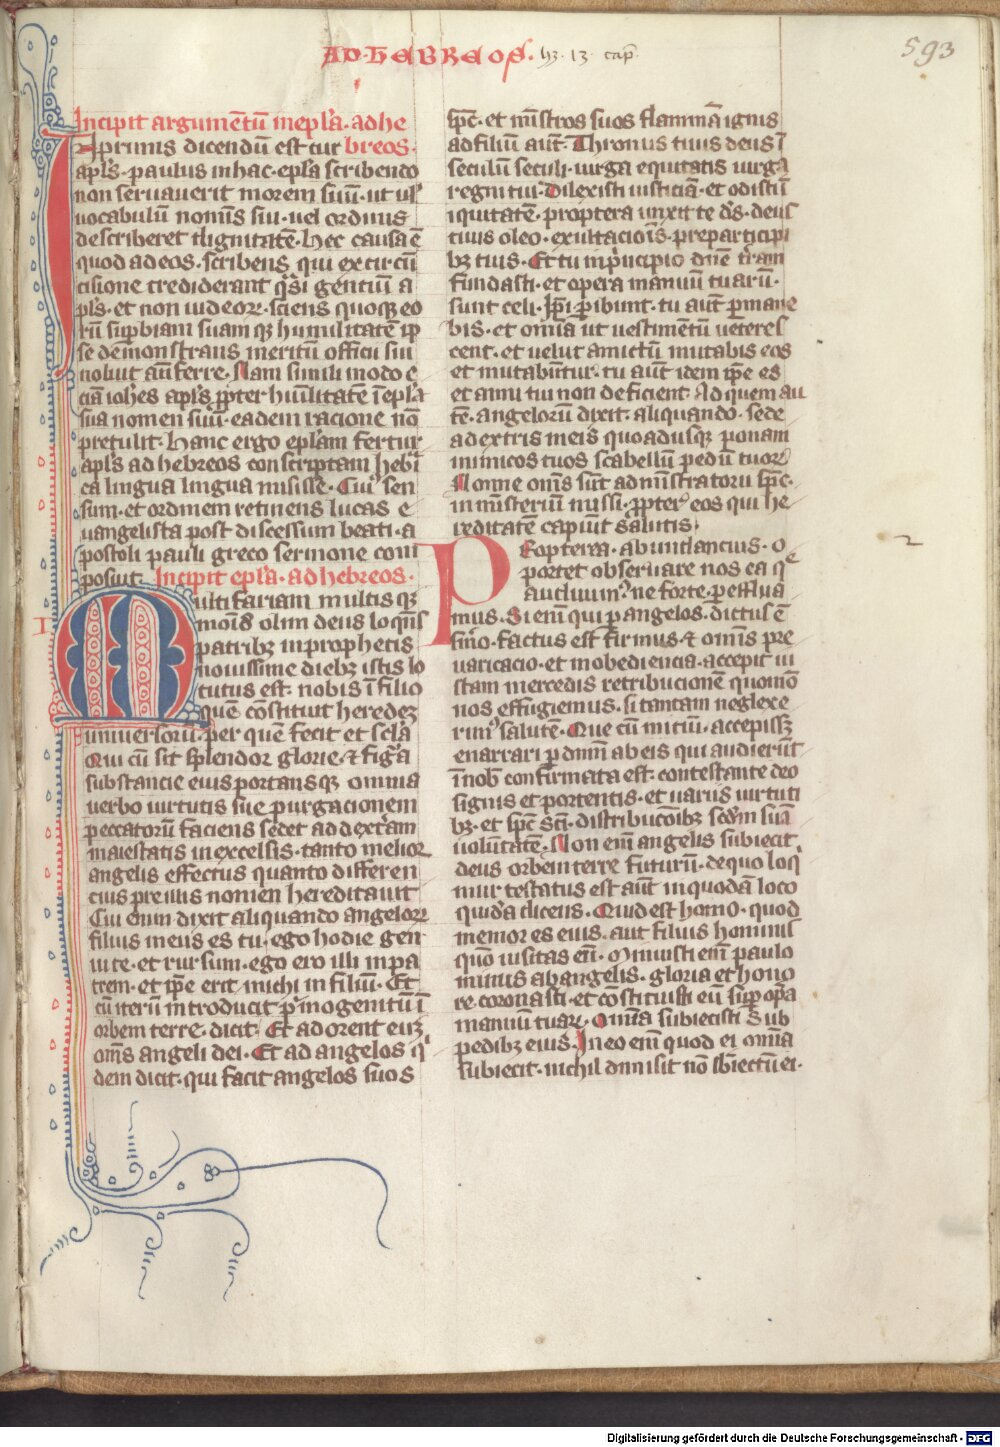 AD·HEBREOS· hꝫ·13·cap̃
593
Incipit argumẽtũ in epl̃a·ad he
In primis dicendũ est cur breos·
apl̃s·paulus in hac·epl̃a scribendo
non seruauerit morem suũ·ut ul̃
uocabulũ nominis sui·uel ordinis
describeret dignitatẽ·hec causa ẽ
quod ad eos·scribens qui ex circũ
cisione crediderant q̃si gentiũ a
pl̃s·et non iudeoꝝ·sciens quoqꝫ eo
rũ sup̱biam suam qꝫ humilitatẽ ip̃
se demonstrans meritũ officii sui
noluit añferre·Nam simili modo e
ciã ioh̃es apl̃s ꝓpter hũilitatẽ ĩ epl̃a
sua nomen suũ·eadem racione nõ
pretulit·Hanc ergo epl̃am fertur
apl̃s ad hebreos conscriptam hebr̃i
ca lingua lingua misisse·Cuiꝰ sen
sum·et ordinem retinens lucas e
uangelista post discessum beati·a
postoli pauli greco sermone com
posuit· Incipit epl̃a·ad hebreos·
I
Multi fariam multis qꝫ
modis olim deus loquẽs
patribꝫ in prophetis
nouissime diebꝫ istis lo
cutus est· nobis ĩ filio
quẽ cõstituit heredeꝫ
uniuersorũ·per quẽ fecit et scl̃a
Qui cũ sit splendor glorie·⁊ figr̃a
substancie eius portansqꝫ omnia
uerbo uirtutis sue purgacionem
peccatorũ faciens sedet ad dext̃am
maiestatis in excelsis·tanto melior
angelis effectus quanto differen
cius pre illis nomen hereditauit
Cui enim dixit aliquando angeloꝝ
filius meus es tu·ego hodie gen
ui te·et rursum·ego ero illi in pa
trem·et ip̃e erit michi in filiũ· Et
cũ iterũ introducit p̃mogenitũ ĩ
orbem terre·dicit· Et adorent euꝫ
om̃s angeli dei·Et ad angelos q̃
dem dicit·qui facit angelos suos
sp̃c̃·et mĩstros suos flammã ignis
ad filiũ aũt·Thronus tuus deus ĩ
seculũ seculi·uirga equitatis uirga
regni tui·Dilexisti iusticiã·et odisti
iquitatẽ·propterea unxit te d̃s·deus
tuus oleo·exultacionis·pre participi
bꝫ tuis·Et tu in p̃ncipio dñe tr̃am
fundasti·et opera manuũ tuarũ·
sunt celi·Ip̃i p̱ibunt·tu aũt p̱mane
bis·et omĩa ut uestimentũ ueteres
cent·et uelut amictũ mutabis eos
et mutabũtur·tu aũt idem ip̃e es
et anni tui non deficient·Ad quem au
tẽ·angelorũ dixit·aliquando·sede
a dextris meis quoadusqꝫ ponam
inimicos tuos scabellũ pedũ tuoꝝ
Nonne om̃s sũt administratorii sp̃c̃·
in mĩsterium missi·ꝓpterꝰ eos qui he
reditatẽ capiũt salutis·
Propterea·abundancius·o
portet obseruare nos ea qe
audiuimꝰ·ne forte·pefflua
mus·Si enĩ qui p̱ angelos·dictus ẽ
sermo·factus est firmus·⁊ om̃is pre
uaricacio·et inobediencia·accepit iu
stam mercedis retribucionẽ quomõ
nos effugiemus·si tantam neglexe
rimꝰ salutẽ·Que cũ iniciũ·accepissꝫ
enarrari p̱ dominũ ab eis qui audierũt
ĩ nob̃ confirmata est·contestante deo
signis et portentis·et uariis uirtuti
bꝫ·et sp̃c̃ sc̃i·distribucoĩbꝫ scd̃m suã
uolũtatẽ·Non enĩ angelis subiecit·
deus orbem terre futurũ·de quo loq̃
mur testatus est aũt in quodã loco
quidã dicens·Quid est homo·quod
memor es eius·aut filius hominis
quõ uisitas eũ·Minuisti eũ paulo
minus ab angelis·gloria et hono
re·coronasti·et cõstituisti eũ sup̱ op̱a
manuũ tuaꝝ·Om̃ia subiecisti sub
pedibꝫ eius·In eo enĩ quod ei om̃ia
subiecit·nichil dimisit nõ sb̃iectũ ei·
2
Digitalisierung gefördert durch die Deutsche Forschungsgemeinschaft - DFG